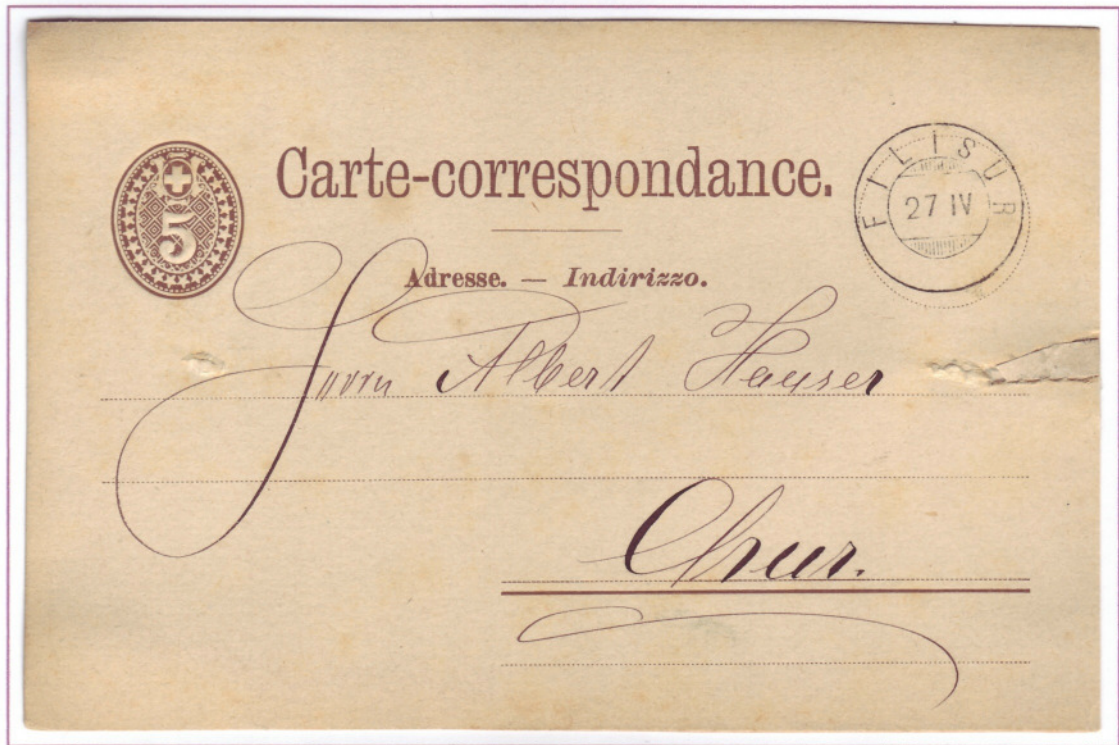 5
Carte-correspondance.
FILISUR
27 IV
Adresse. — Indirizzo.
Herrn Albert Hauser
Chur.